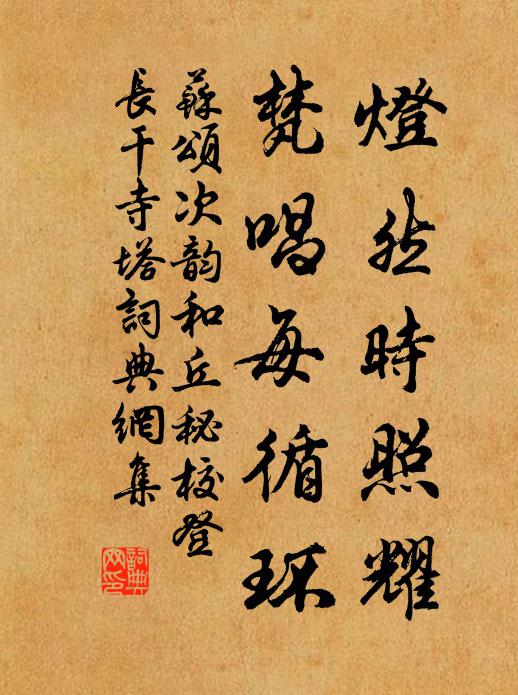 燈然時照耀
梵唱每循環
蘇頌次韵和丘秘校登
長干寺塔詞典網集
詞典
网印